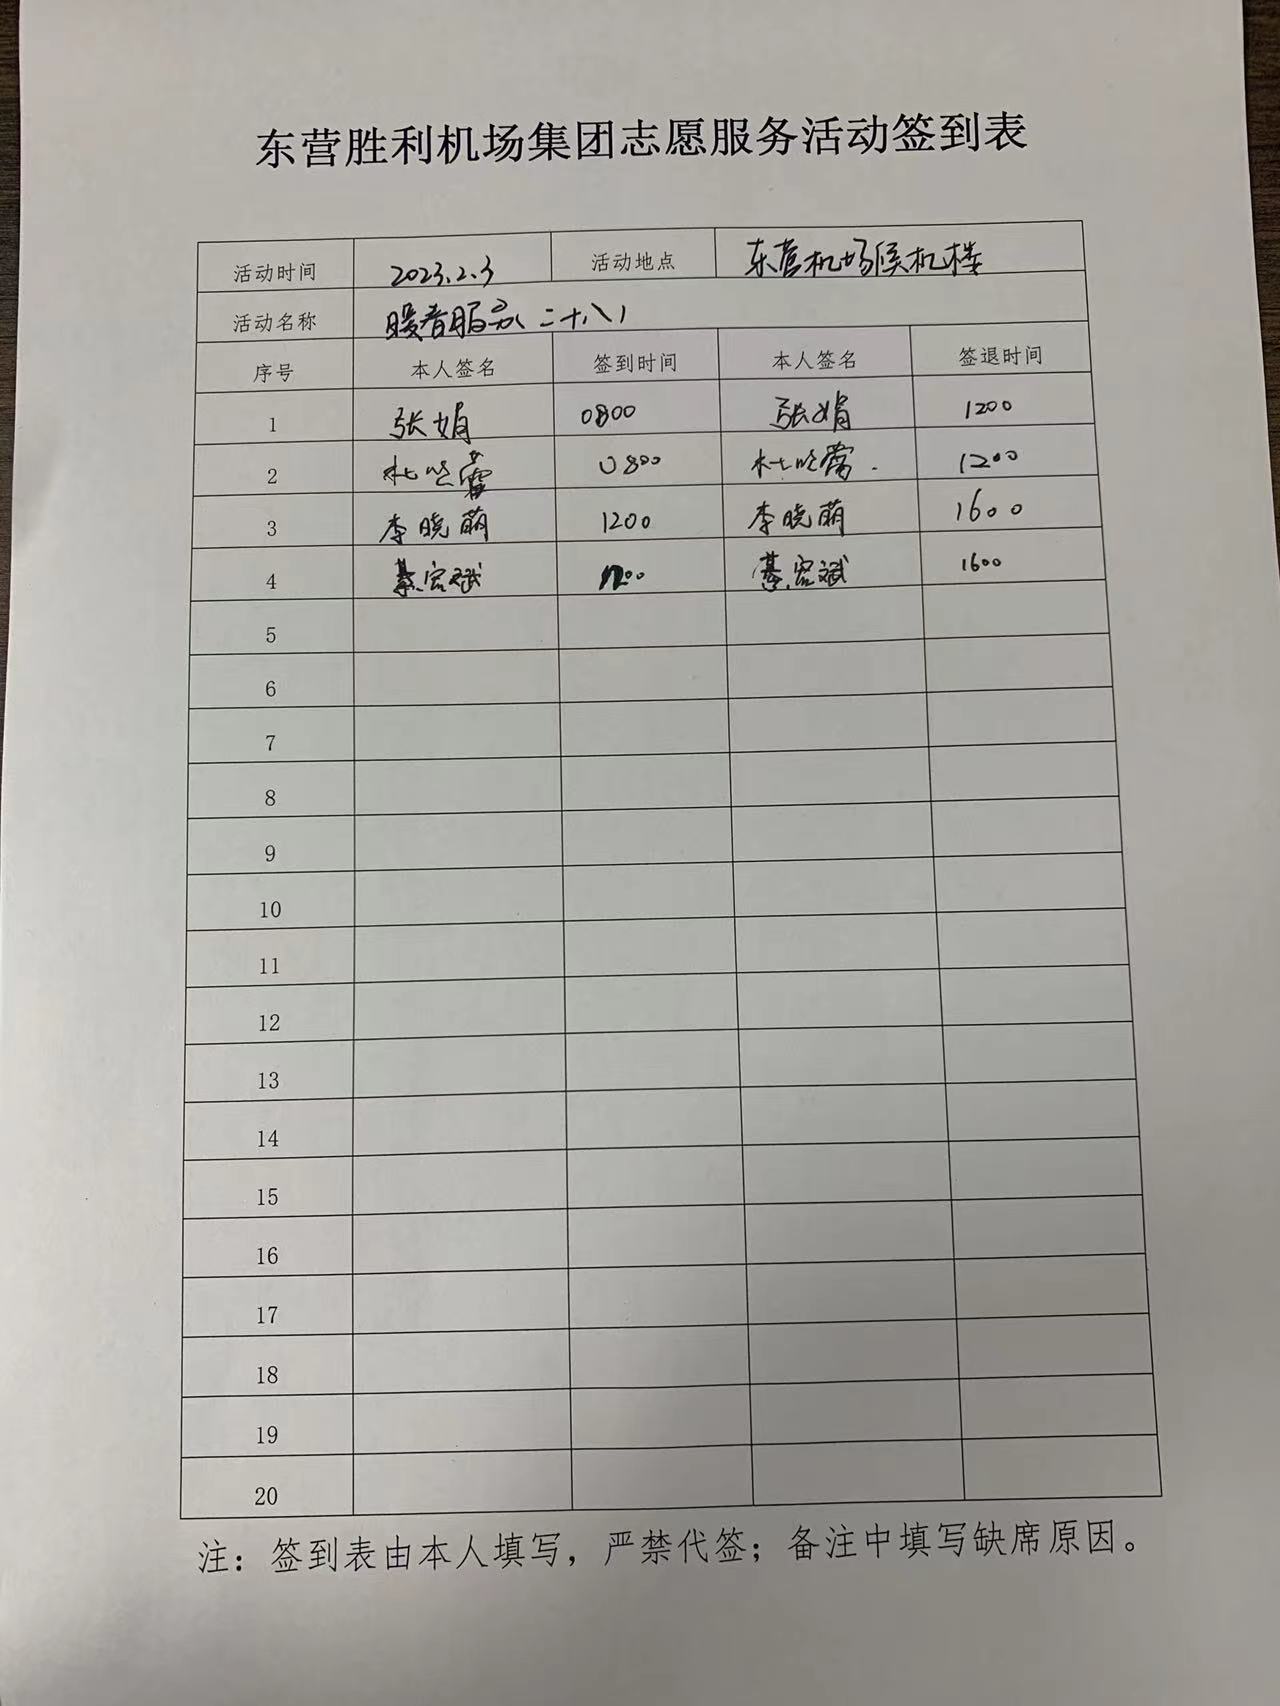 东营胜利机场集团志愿服务活动签到表
活动时间 2023.2.3 活动地点 东营机场候机楼
活动名称 暖春服务(二十八)
序号 本人签名 签到时间 本人签名 签退时间
1 张娟 0800 张娟 1200
2 0800 1200
3 李晓萌 1200 李晓萌 1600
4 1200 1600
5
6
7
8
9
10
11
12
13
14
15
16
17
18
19
20
注：签到表由本人填写，严禁代签；备注中填写缺席原因。